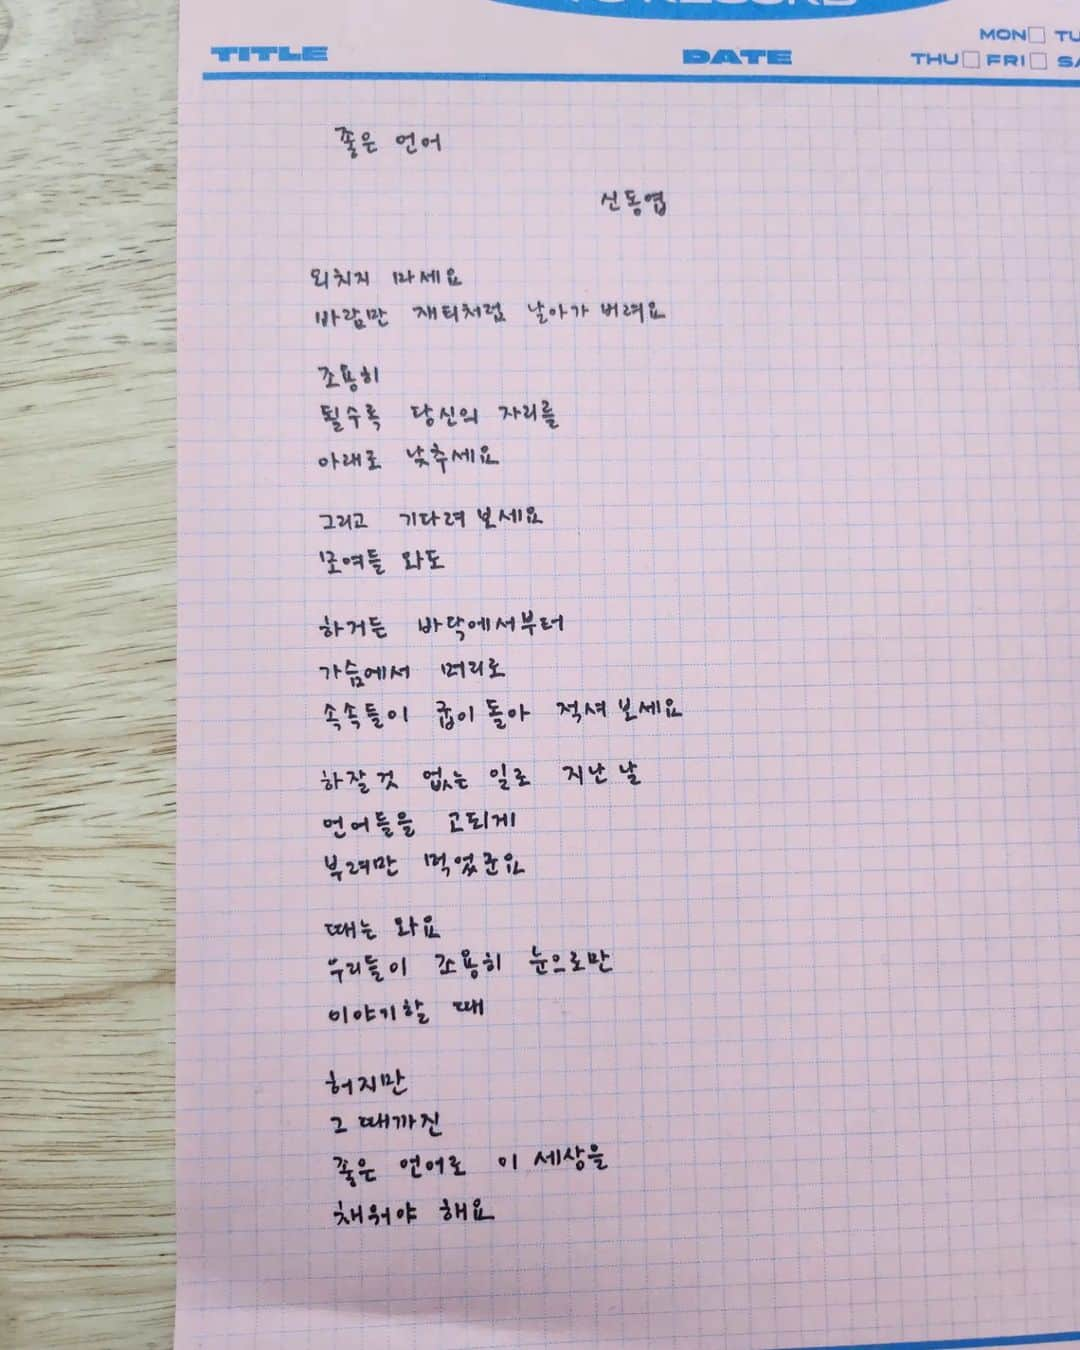 TO RECORD
TITLE
DATE
MON
THU FRI
좋은 언어
신동엽
외치지 마세요
바람만 재티처럼 날아가 버려요
조용히
될수록 당신의 자리를
아래로 낮추세요
그리고 기다려 보세요
모여들 와도
하거든 바닥에서부터
가슴에서 머리로
속속들이 굽이 돌아 적셔 보세요
하잘 것 없는 일로 지난 날
언어들을 고되게
부려만 먹었군요
때는 와요
우리들이 조용히 눈으로만
이야기할 때
허지만
그 때까진
좋은 언어로 이 세상을
채워야 해요